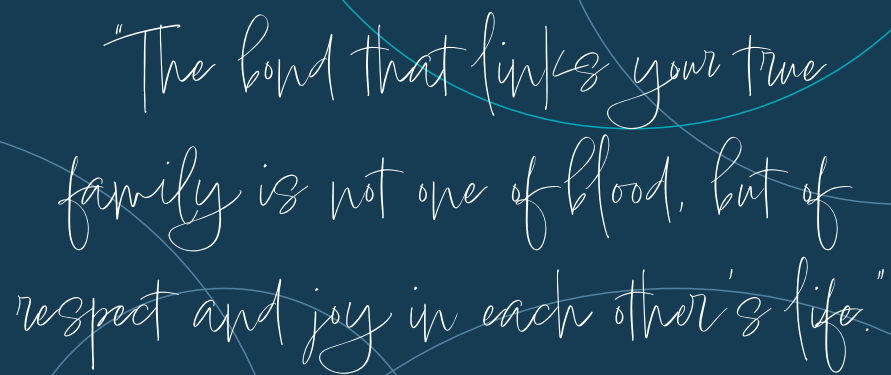 "The bond that links your true
family is not one of blood, but of
respect and joy in each other's life."